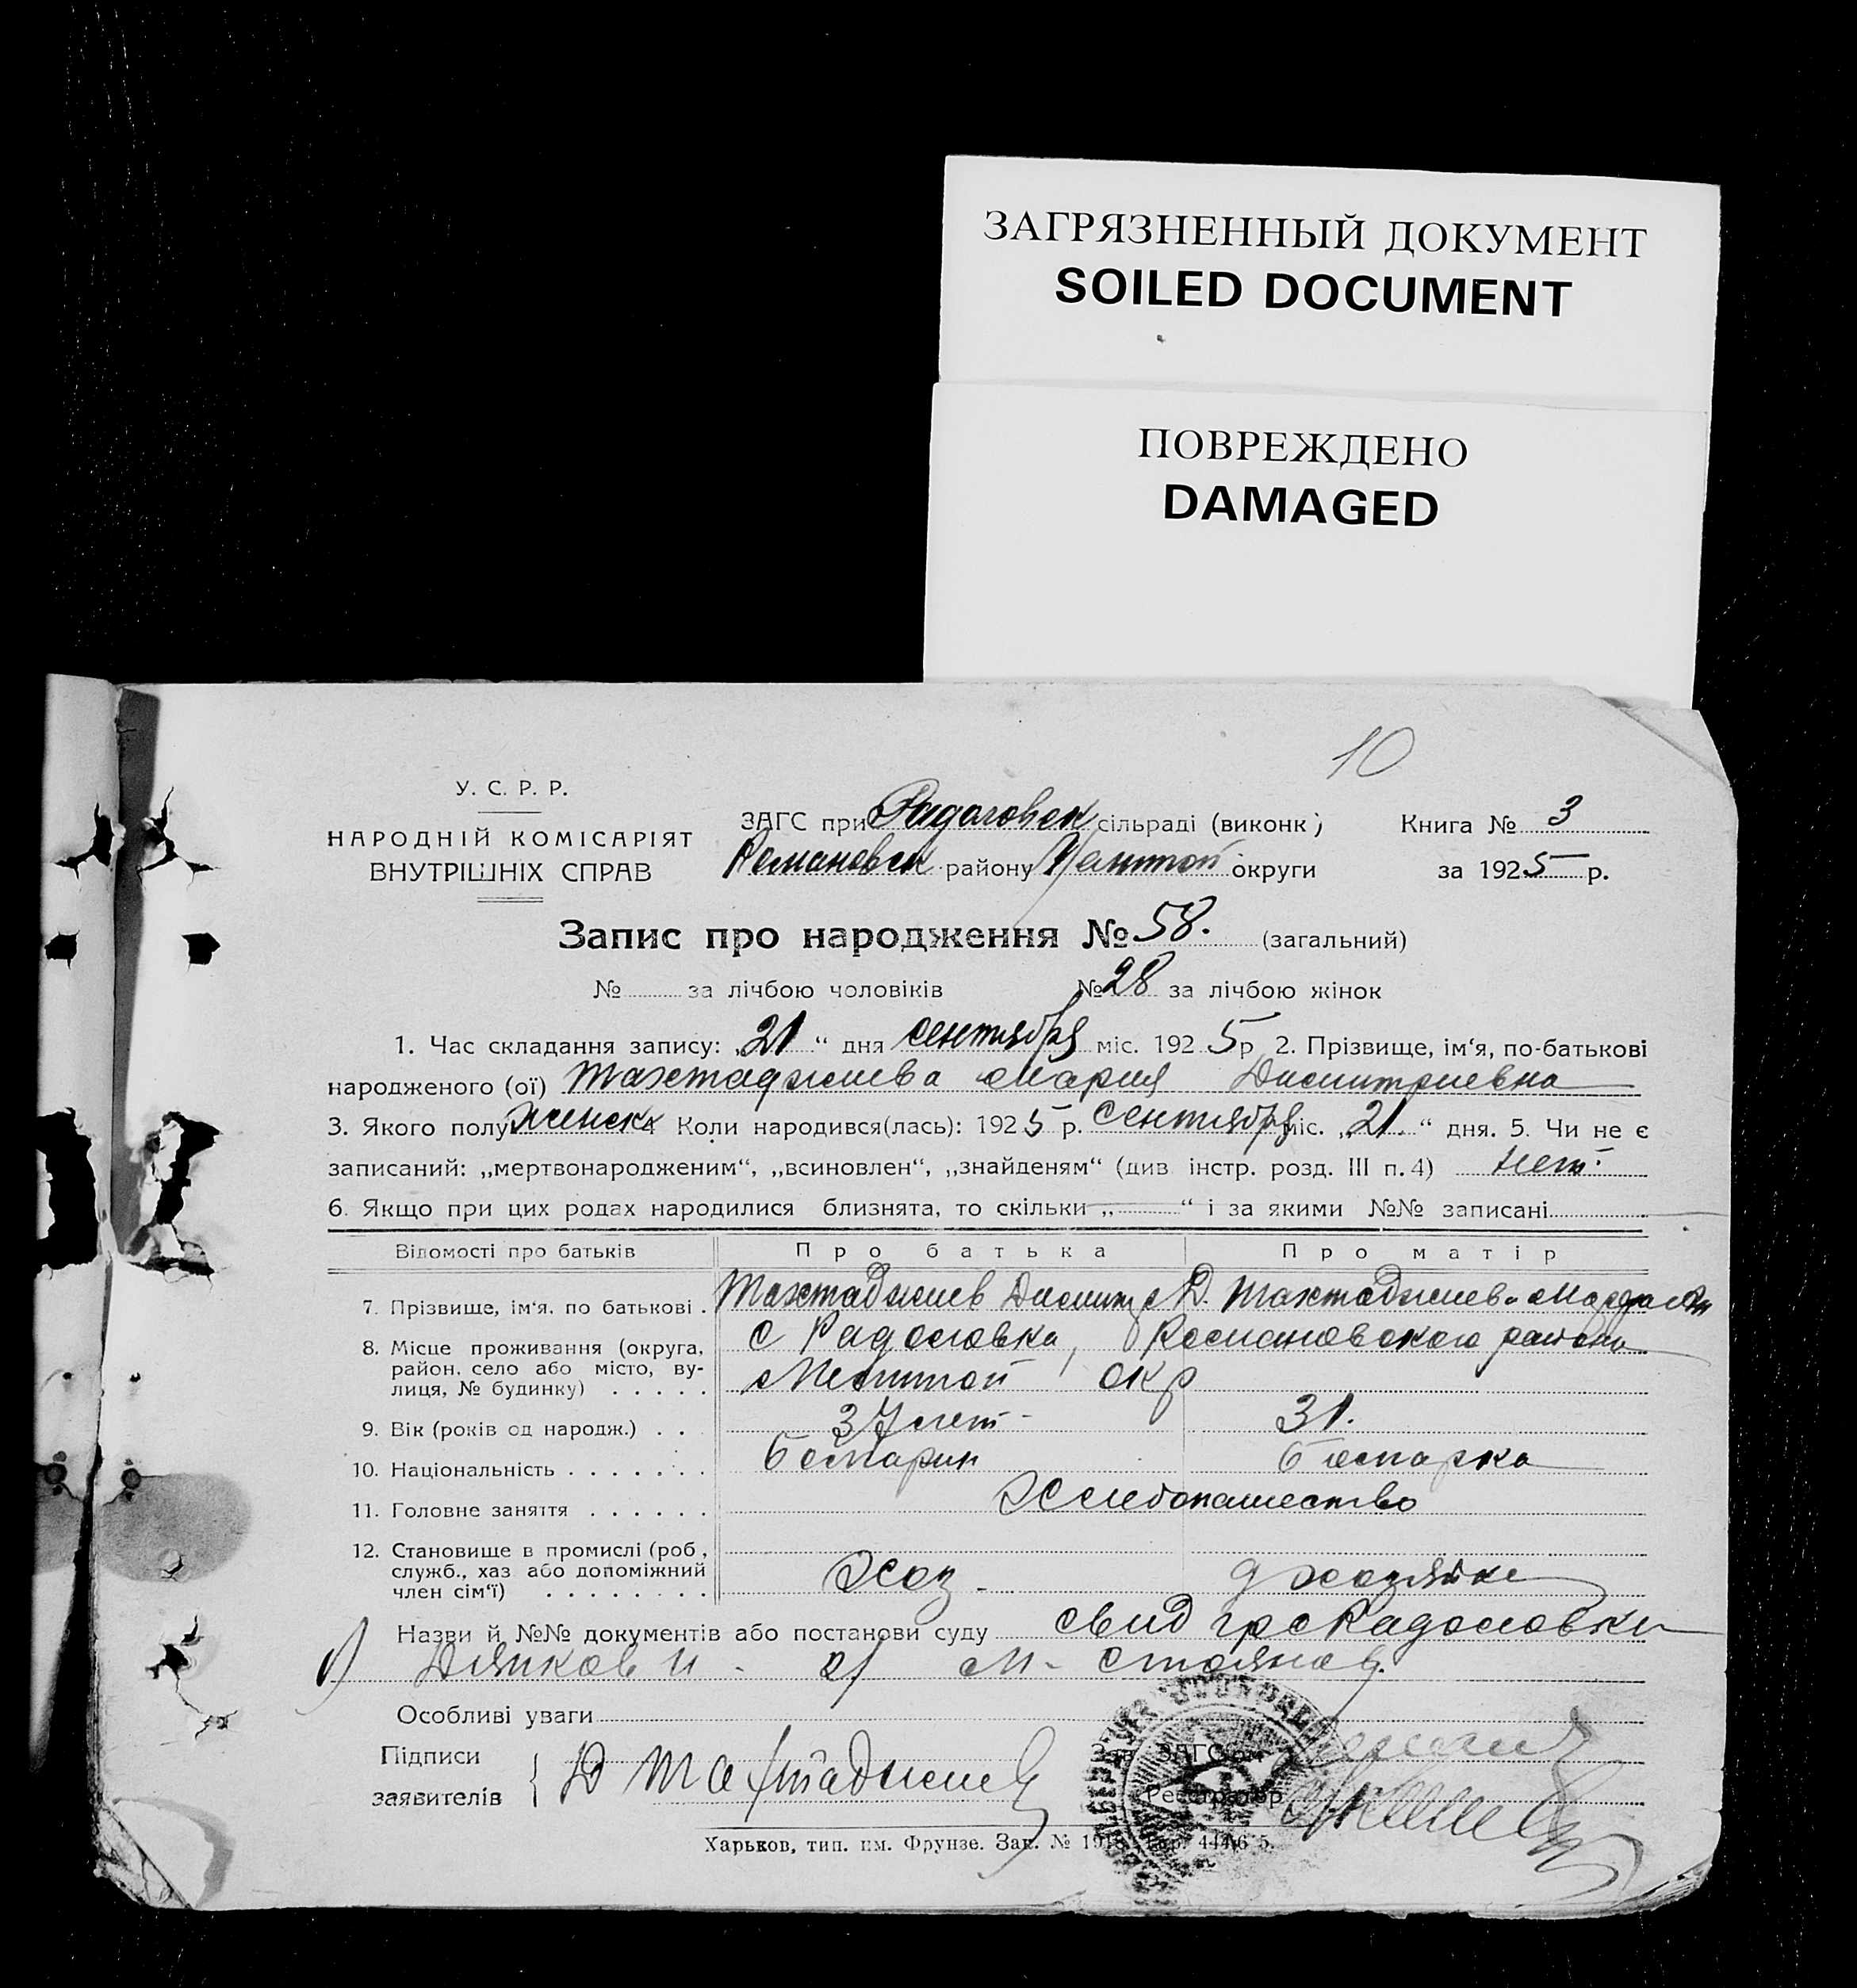 ЗАГРЯЗНЕННЫЙ ДОКУМЕНТ
SOILED DOCUMENT
ПОВРЕЖДЕНО
DAMAGED
10
У. С. Р. Р.
НАРОДНІЙ КОМІСАРІЯТ
ВНУТРІШНІХ СПРАВ
ЗАГС при Радоловск сільраді (виконк) Книга № 3
Романовск району округи за 1925 р.
Запис про народження № 58. (загальний)
№ за лічбою чоловіків № 28 за лічбою жінок
1. Час складання запису: „21“ дня сентября міс. 1925 р 2. Прізвище, ім‘я, по-батькові
народженого (ої) Тахтаджиева Мария Димитриевна
3. Якого полу женск 4 Коли народився(лась): 1925 р. Сентября міс. „21.“ дня. 5. Чи не є
записаний: „мертвонародженим“, „всиновлен“, „знайденям“ (див. інстр. розд. III п. 4) нет.
6. Якщо при цих родах народилися близнята, то скільки „ “ і за якими №№ записані
Відомості про батьків Про батька Про матір
7. Прізвище, ім‘я. по батькові . Тахтаджиев Димитр Д. Тахтаджиева
8. Місце проживання (округа, с Радоловка, Романовского района
район, село або місто, ву-
лиця, № будинку) . . . . . Мелитоп окр
9. Вік (років од народж.) . . . 37 лет - 31.
10. Національність . . . . . . . болгарин болгарка
11. Головне заняття . . . . . . Хлебопашество
12. Становище в промислі (роб.,
служб., хаз або допоміжний Хоз. д хозяйка
член сім‘ї) . . . . . . . .
Назви й №№ документів або постанови суду свид гр с Радоловки
1) Дяпков И - 2) М - Стоянов.
Особливі уваги
Підписи Зав. ЗАГС‘ом
заявителів { Д Тахтаджиев Реєстратор
Харьков, тип. им. Фрунзе. Зак. №